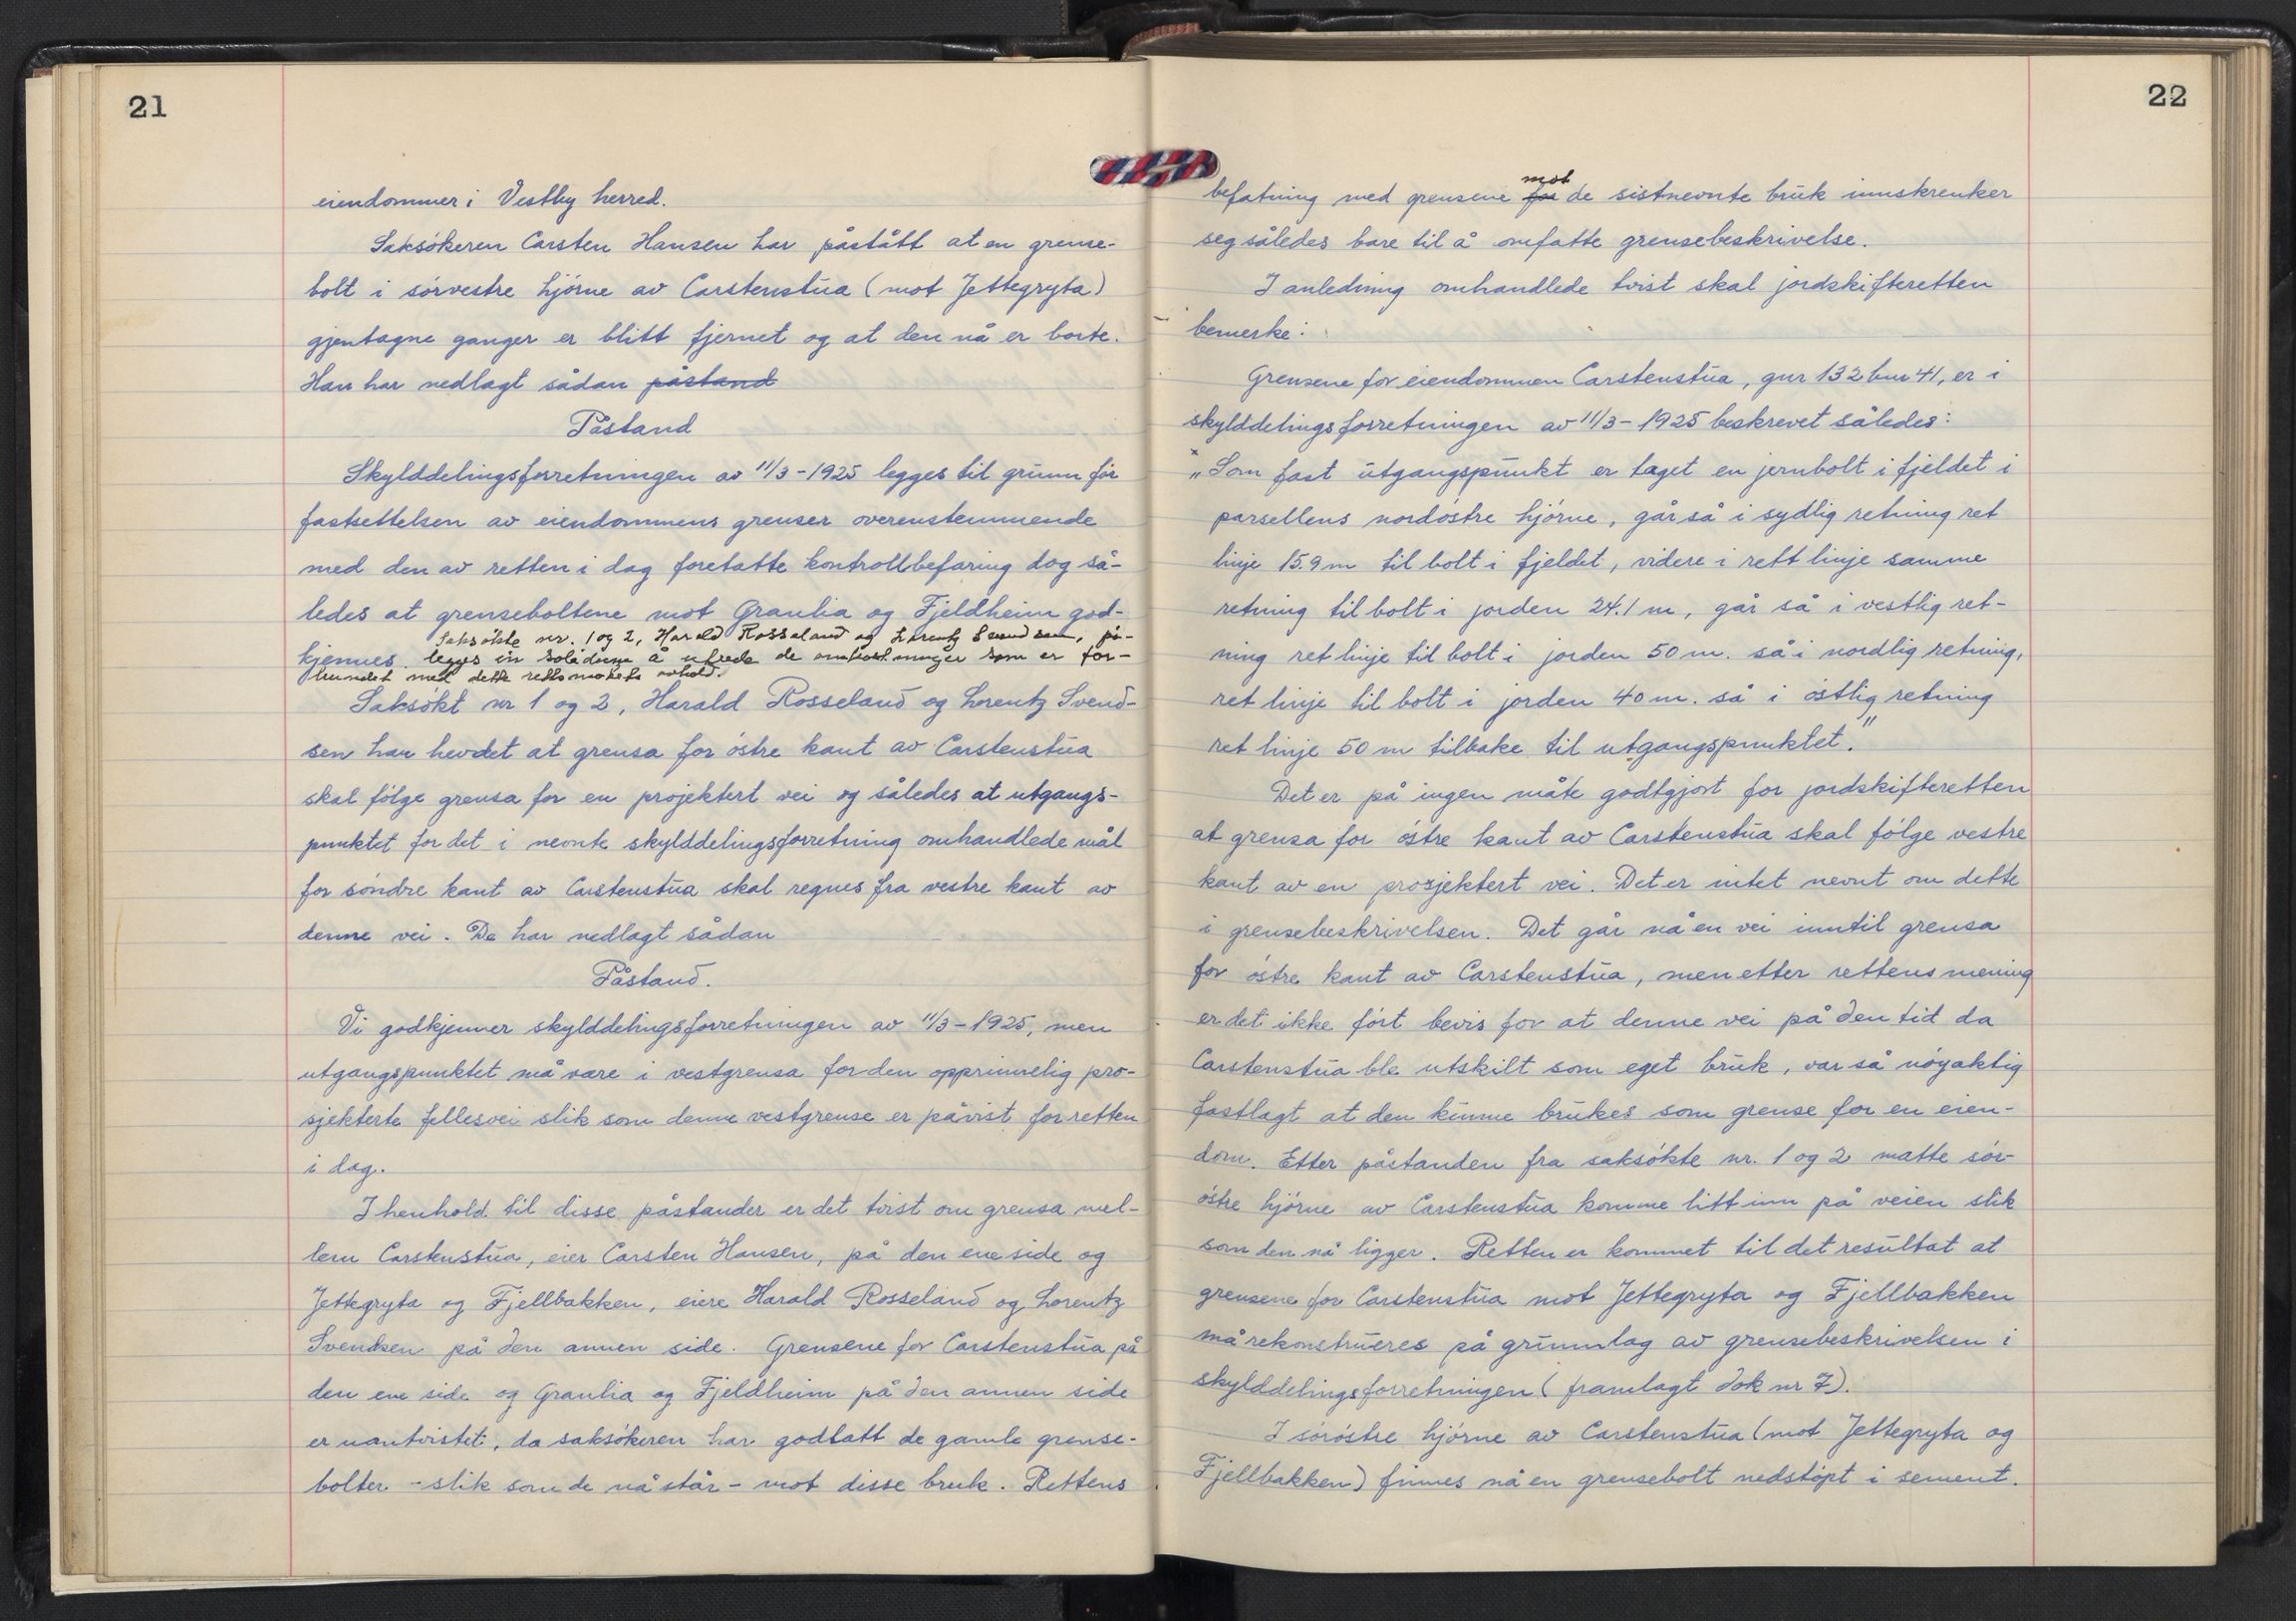 21
eiendommer i Vestby herred.
Saksökeren Carsten Hansen har påstått at en grense-
bolt i sörvestre hjörne av Carstenstua (mot Jettegryta)
gjentagne ganger er blitt fjernet og at den nå er borte.
Han har nedlagt sådan påstand
Påstand
Skylddelingsforretningen av 11/3-1925 legges til grunn for
fastsettelsen av eiendommens grenser overenstemmende
med den av retten i dag foretatte kontrollbefaring dog så-
ledes at grenseboltene mot Granlia og Fjeldheim god-
kjennes. Saksökte nr. 1 og 2, Harald Rosseland og Lorentz Svendsen, på-
legges in solidum å utrede de omkostninger som er for-
bundet med dette rettsmötets avhold.
Saksökt nr 1 og 2, Harald Rosseland og Lorentz Svend-
sen har hevdet at grensa for östre kant av Carstenstua
skal fölge grensa for en projektert vei og således at utgangs-
punktet for det i nevnte skylddelingsforretning omhandlede mål
for söndre kant av Carstenstua skal regnes fra vestre kant av
denne vei. De har nedlagt sådan
Påstand.
Vi godkjenner skylddelingsforretningen av 11/3-1925, men
utgangspunktet må være i vestgrensa for den opprinnelig pro-
sjekterte fellesvei slik som denne vestgrense er påvist for retten
i dag.
I henhold til disse påstander er det tvist om grensa mel-
lem Carstenstua, eier Carsten Hansen, på den ene side og
Jettegryta og Fjellbakken, eiere Harald Rosseland og Lorentz
Svendsen på den annen side. Grensene for Carstenstua på
den ene side og Granlia og Fjeldheim på den annen side
er uantvistet, da saksökeren har godtatt de gamle grense-
bolter - slik som de nå står - mot disse bruk. Rettens
22
befatning med grensene for mot de sistnevnte bruk innskrenker
seg således bare til å omfatte grensebeskrivelse.
I anledning omhandlede tvist skal jordskifteretten
bemerke:
Grensene for eiendommen Carstenstua, gnr 132 bnr 41, er i
skylddelingsforretningen av 11/3-1925 beskrevet således:
"Som fast utgangspunkt er taget en jernbolt i fjeldet i
parsellens nordöstre hjörne, går så i sydlig retning ret
linje 15.9 m til bolt i fjeldet, videre i rett linje samme
retning til bolt i jorden 24.1 m, går så i vestlig ret-
ning ret linje til bolt i jorden 50 m. så i nordlig retning,
ret linje til bolt i jorden 40 m. så i östlig retning
ret linje 50 m tilbake til utgangspunktet."
Det er på ingen måte godtgjort for jordskifteretten
at grensa for östre kant av Carstenstua skal fölge vestre
kant av en prosjektert vei. Det er intet nevnt om dette
i grensebeskrivelsen. Det går nå en vei inntil grensa
for östre kant av Carstenstua, men etter rettens mening
er det ikke fört bevis for at denne vei på den tid da
Carstenstua ble utskilt som eget bruk, var så nöyaktig
fastlagt at den kunne brukes som grense for en eien-
dom. Etter påstanden fra saksökte nr. 1 og 2 matte sör-
östre hjörne av Carstenstua komme litt inn på veien slik
som den nå ligger. Retten er kommet til det resultat at
grensene for Carstenstua mot Jettegryta og Fjellbakken
må rekonstrueres på grunnlag av grensebeskrivelsen i
skylddelingsforretningen (framlagt dok nr 7).
I söröstre hjörne av Carstenstua (mot Jettegryta og
Fjellbakken) finnes nå en grensebolt nedstöpt i sement.